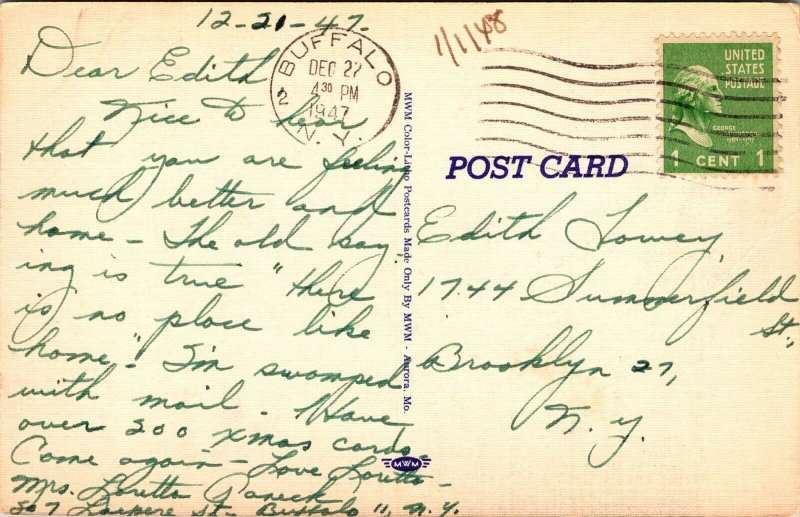 12-21-47-
Dear Edith
Nice to hear
that you are feeling
much better and
home - The old say
ing is true "there
is no place like
home" - I'm swamped
with mail - Have
over 200 xmas cards
Come again - Love Loretta -
Mrs. Loretta
307 St - Buffalo 11, N.Y.
BUFFALO
DEC 27
4 30 PM
1947
N. Y.
2
1/1/48
UNITED
STATES
POSTAGE
GEORGE
1 CENT 1
POST CARD
MWM Color-Litho Postcards Made Only By MWM - Aurora, Mo.
MWM
Edith Towey,
1744 Summerfield
St.,
Brooklyn 27,
N. Y.